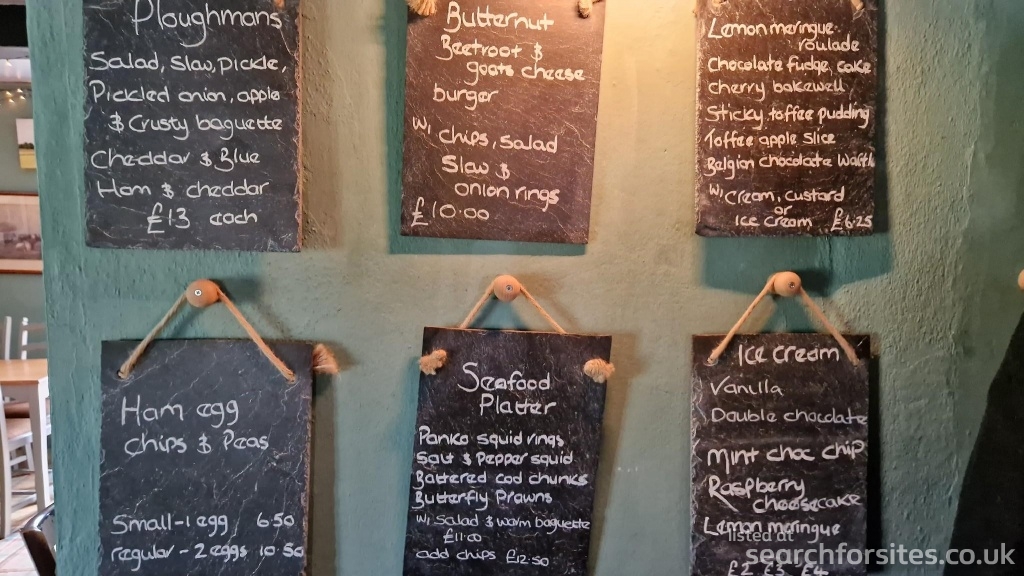 Ploughmans
Salad, Slaw, pickle,
Pickled onion, apple
& Crusty baguette
Cheddar & Blue
Ham & cheddar
£13 each
Butternut
Beetroot &
goats cheese
burger
Wi chips, salad
Slaw &
onion rings
£10.00
Lemon meringue
roulade
Chocolate fudge cake
cherry bakewell
Sticky toffee pudding
Toffee apple slice
Belgian chocolate waffle
Wi cream, custard
or
Ice cream £6.25
Ham egg
chips & Peas
Small-1 egg 6.50
regular - 2 eggs 10.50
Seafood
Platter
Panko squid rings
Salt & Pepper squid
Battered cod chunks
Butterfly Prawns
Wi Salad & warm baguette
£11.00
add chips £12.50
Ice cream
Vanilla
Double chocolate
Mint choc chip
Raspberry
cheesecake
Lemon meringue
£2 £3 £4
listed at
searchforsites.co.uk